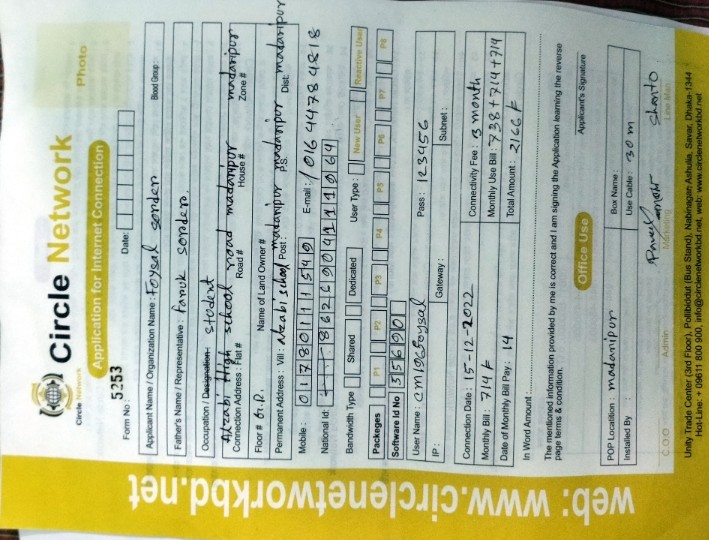 Circle Network
Circle Network
Photo
Application for Internet Connection
Form No : 5253 Date:
Applicant Name / Organization Name : Foysal sorder Blood Group :
Father's Name / Representative : Faruk sorder.
Occupation / Designation : student
Alzabi High school road madaripur madaripur
Connection Address : Flat # Road # House # Zone #
Floor # G.P. Name of Land Owner #
Permanent Address : Vill : Alzabi school Post : madaripur P.S. madaripur Dist: madaripur
Mobile : 01780111549 E-mail : / 01644784818
National Id: 8626904111064
Bandwidth Type Shared Dedicated User Type : New User Reactive User
Packeges P1 P2 P3 P4 P5 P6 P7 P8
Software Id No 35690
User Name : cm196Foysal Pass : 123456
IP : Gateway : Subnet :
Connection Date : 15-12-2022 Connectivity Fee : 3 month
Monthly Bill : 714/- Monthly Use Bill : 738+714+714
Date of Monthly Bill Pay : 14 Total Amount : 2166/-
In Word Amount :
The mentioned information provided by me is correct and I am signing the Application learning the reverse
page terms & condition.
Applicant's Signature
Office Use
POP Location : madaripur Box Name :
Installed By : Use Cable : 30 m
Shanto
C.O.O Admin Marketing Line Man
Unity Trade Center (3rd Floor), Pollibidut (Bus Stand), Nabinagan Ashulia, Savar, Dhaka-1344
Hot-Line: + 09611 800 900, info@circlenetworkbd.net, web: www.circlenetworkbd.net
web: www.circlenetworkbd.net